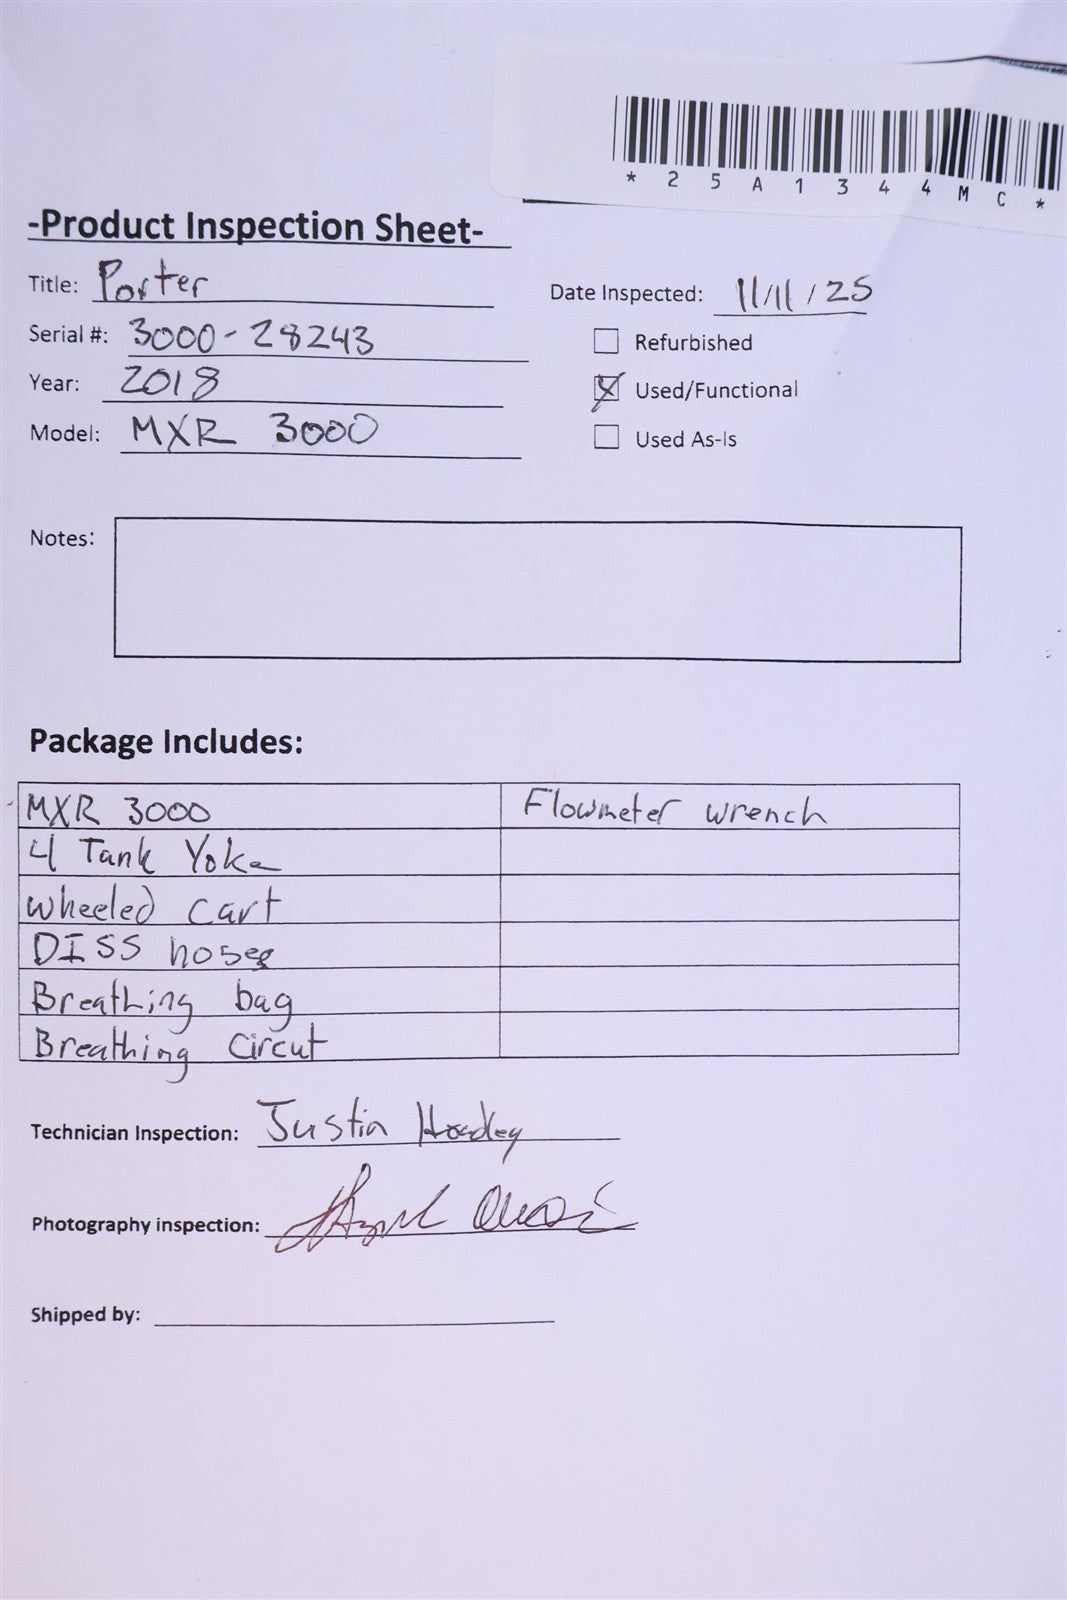 *25A1344MC*
-Product Inspection Sheet-
Title: Porter
Date Inspected: 11/11/25
Serial #: 3000-28243
Refurbished
Year: 2018
Used/Functional
Model: MXR 3000
Used As-Is
Notes:
Package Includes:
MXR 3000 Flowmeter wrench
4 Tank Yoke
Wheeled Cart
DISS hoses
Breathing bag
Breathing Circut
Technician Inspection: Justin Hoadley
Photography inspection:
Shipped by: